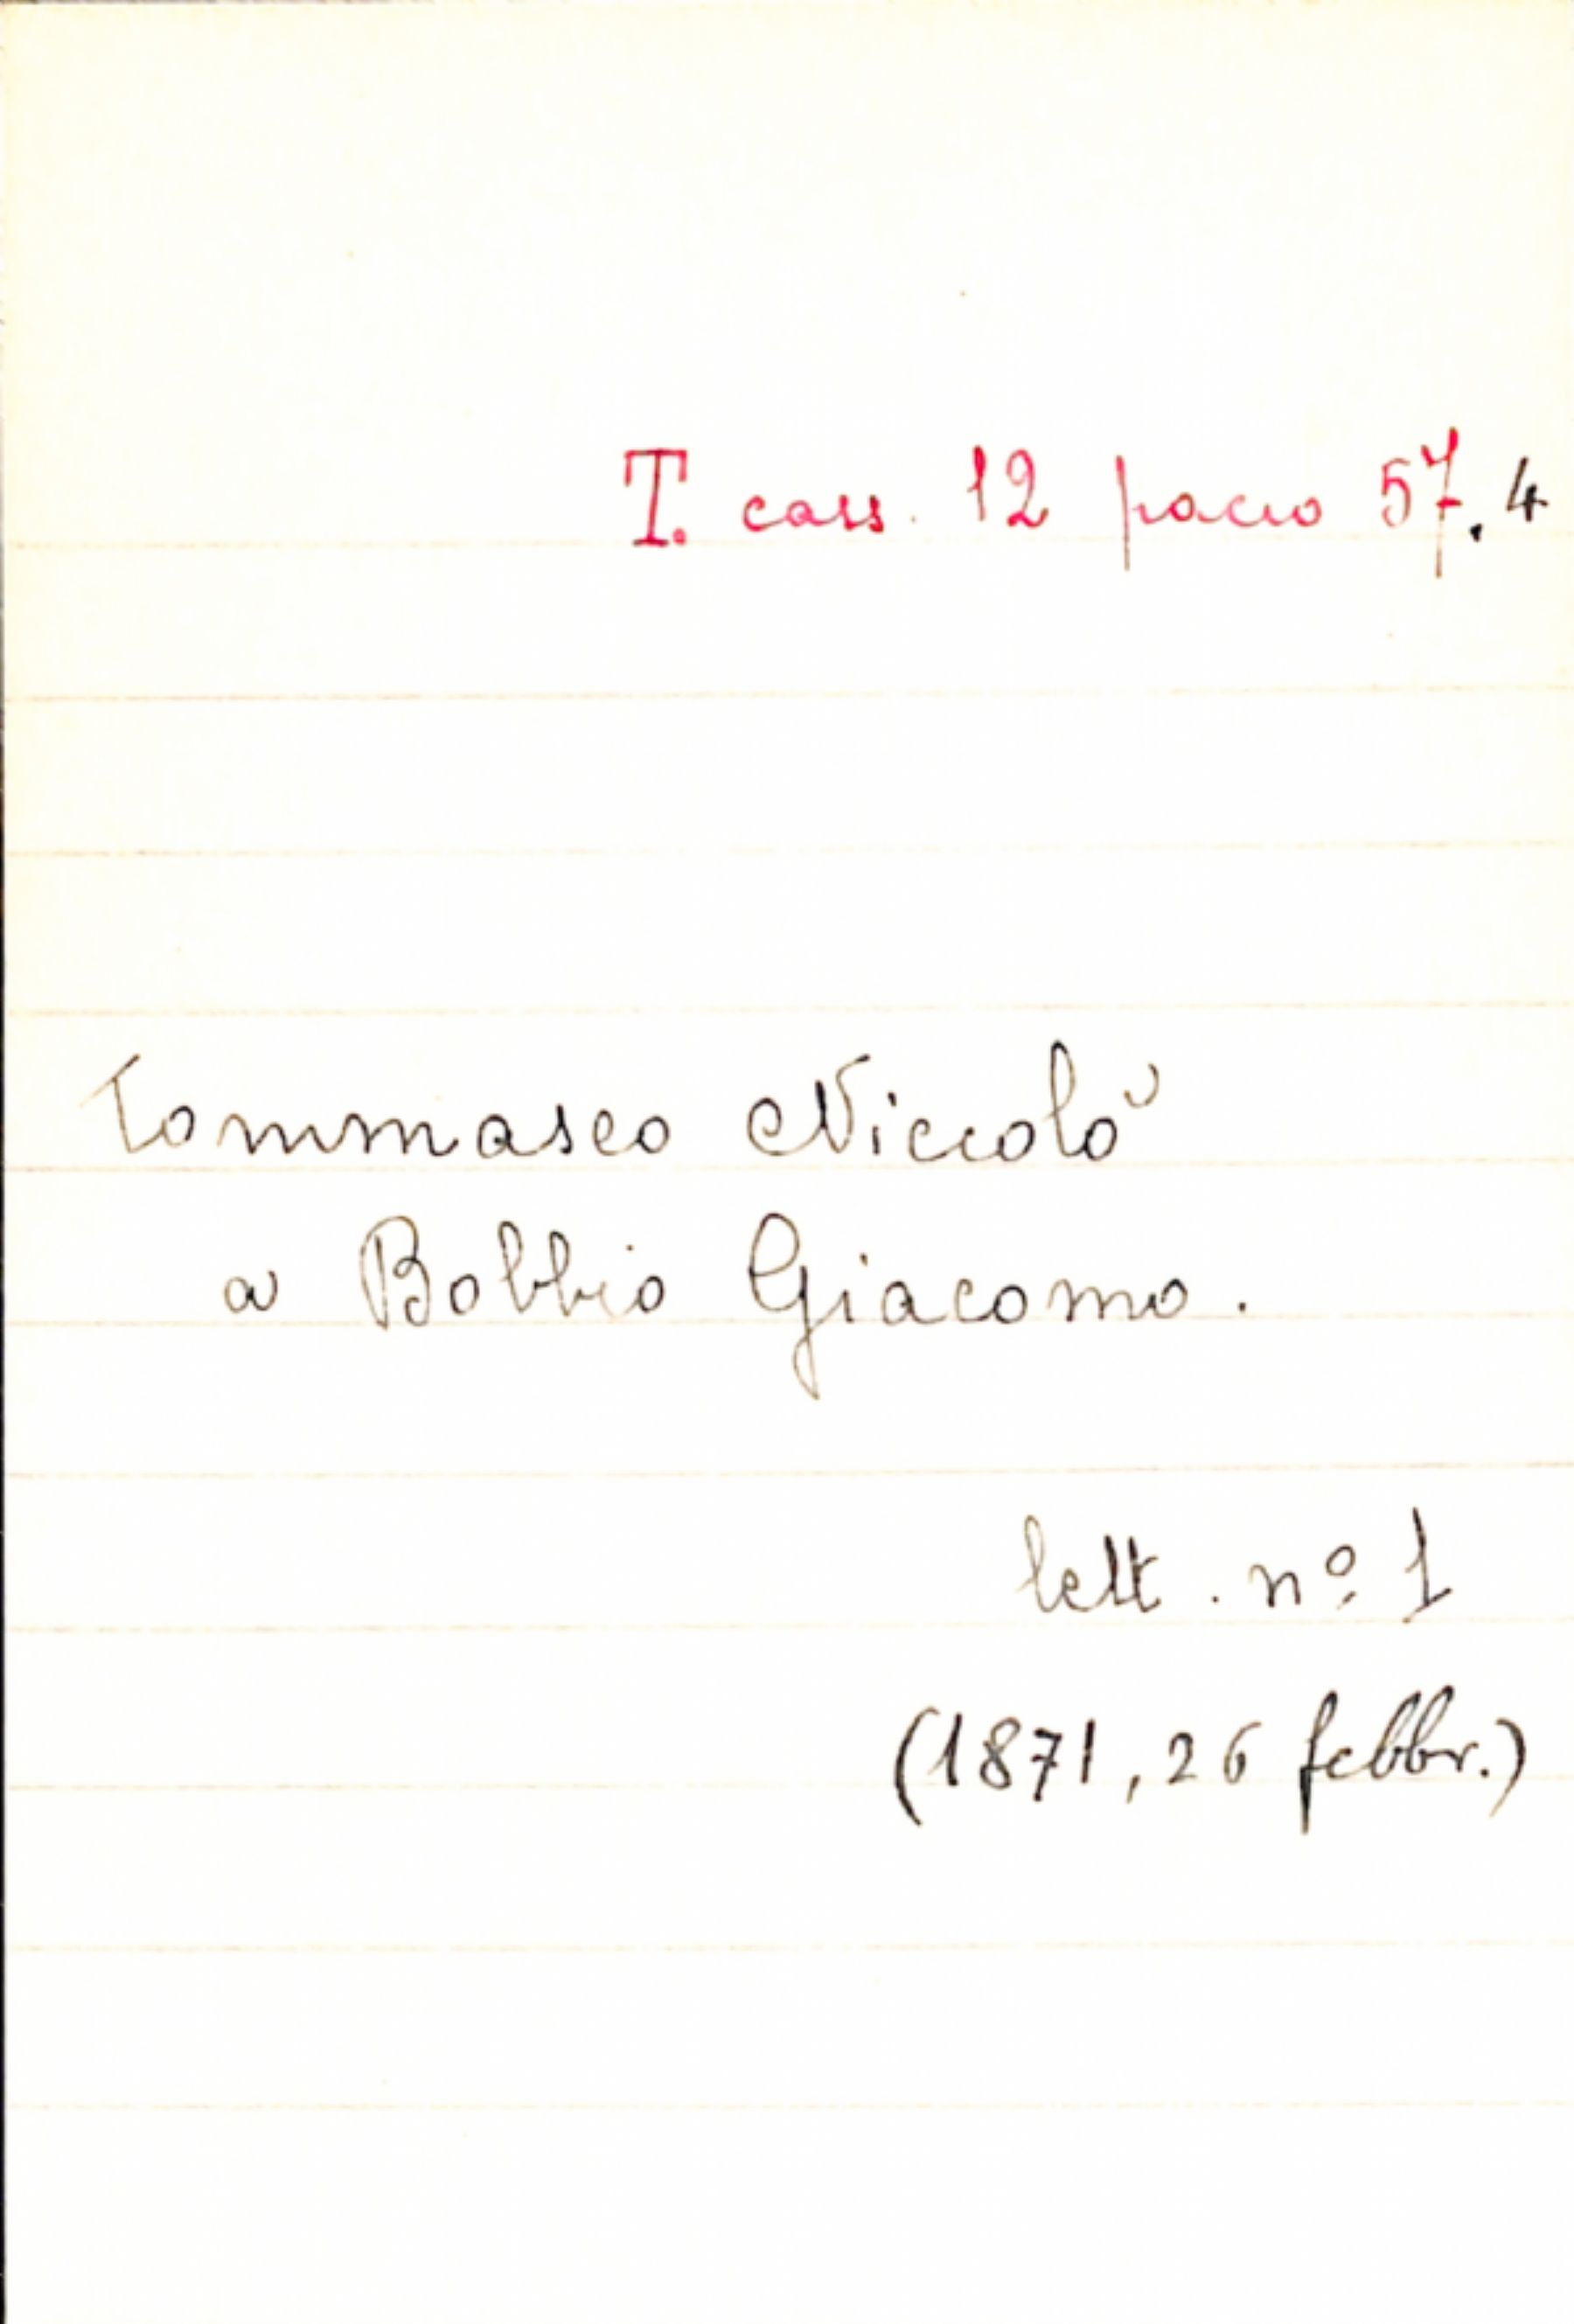 T. cass. 12 pacco 57.4
Tommaseo Niccolò
a Bobbio Giacomo.
lett. nº 1
(1871, 26 febbr.)